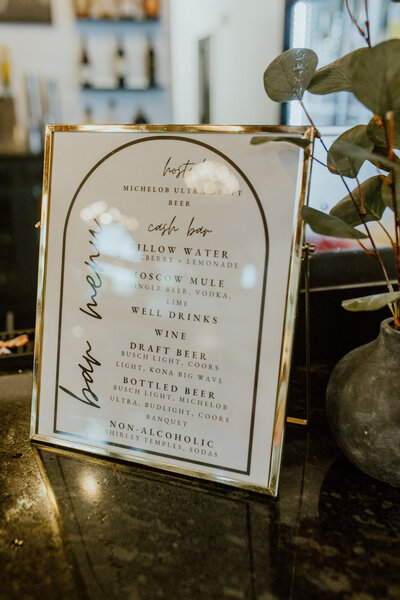 hosted
MICHELOB ULTRA DRAFT
BEER
cash bar
WILLOW WATER
+ LEMONADE
MOSCOW MULE
GINGER BEER, VODKA,
LIME
WELL DRINKS
WINE
DRAFT BEER
BUSCH LIGHT, COORS
LIGHT, KONA BIG WAVE
BOTTLED BEER
BUSCH LIGHT, MICHELOB
ULTRA, BUDLIGHT, COORS
BANQUET
NON-ALCOHOLIC
SHIRLEY TEMPLES, SODAS
bar menu